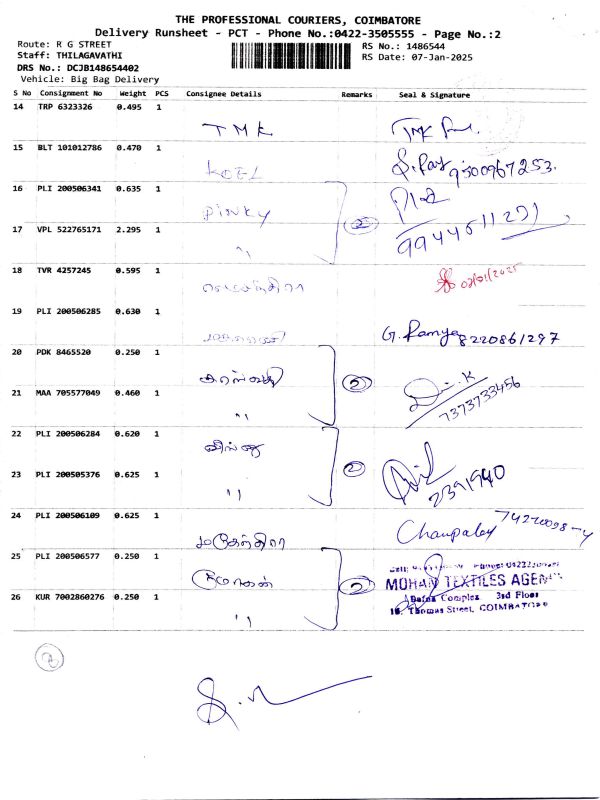 THE PROFESSIONAL COURIERS, COIMBATORE
Delivery Runsheet - PCT - Phone No.:0422-3505555 - Page No.:2
Route: R G STREET
RS No.: 1486544
Staff: THILAGAVATHI
RS Date: 07-Jan-2025
DRS No.: DCJB148654402
Vehicle: Big Bag Delivery
S No Consignment No Weight PCS Consignee Details Remarks Seal & Signature
14 TRP 6323326 0.495 1
TMK TMK
15 BLT 101012786 0.470 1
KOEL 9500967253.
16 PLI 200506341 0.635 1
PINKY 2 9944511291
17 VPL 522765171 2.295 1
"
18 TVR 4257245 0.595 1
07/01/2025
19 PLI 200506285 0.630 1
G. Ramya 8220861297
20 PDK 8465520 0.250 1
2
21 MAA 705577049 0.460 1
" 7373733456
22 PLI 200506284 0.620 1
2
23 PLI 200505376 0.625 1
" 2391940
24 PLI 200506109 0.625 1
மகேந்திரா
25 PLI 200506577 0.250 1
மோகன் 2 MOHAN TEXTILES AGEN
3rd Floor
26 KUR 7002860276 0.250 1
" Thomas Street, COIMBATORE
2